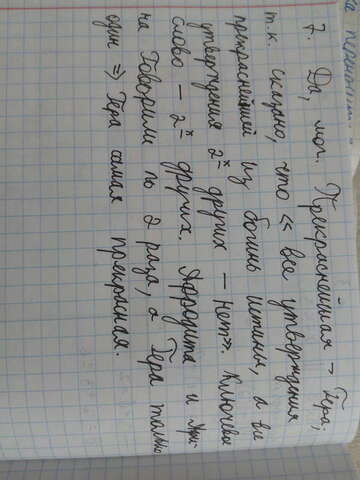 7. Да, мог. Прекраснейшая – Гера,
т.к. сказано, что « все утверждения
прекраснейшей из богинь истины, а все
утверждения 2ˣ других – нет». Ключевое
слово – 2ˣ других. Афродита и Афи-
на говорили по 2 раза, а Гера только
один ⇒ Гера самая прекрасная.